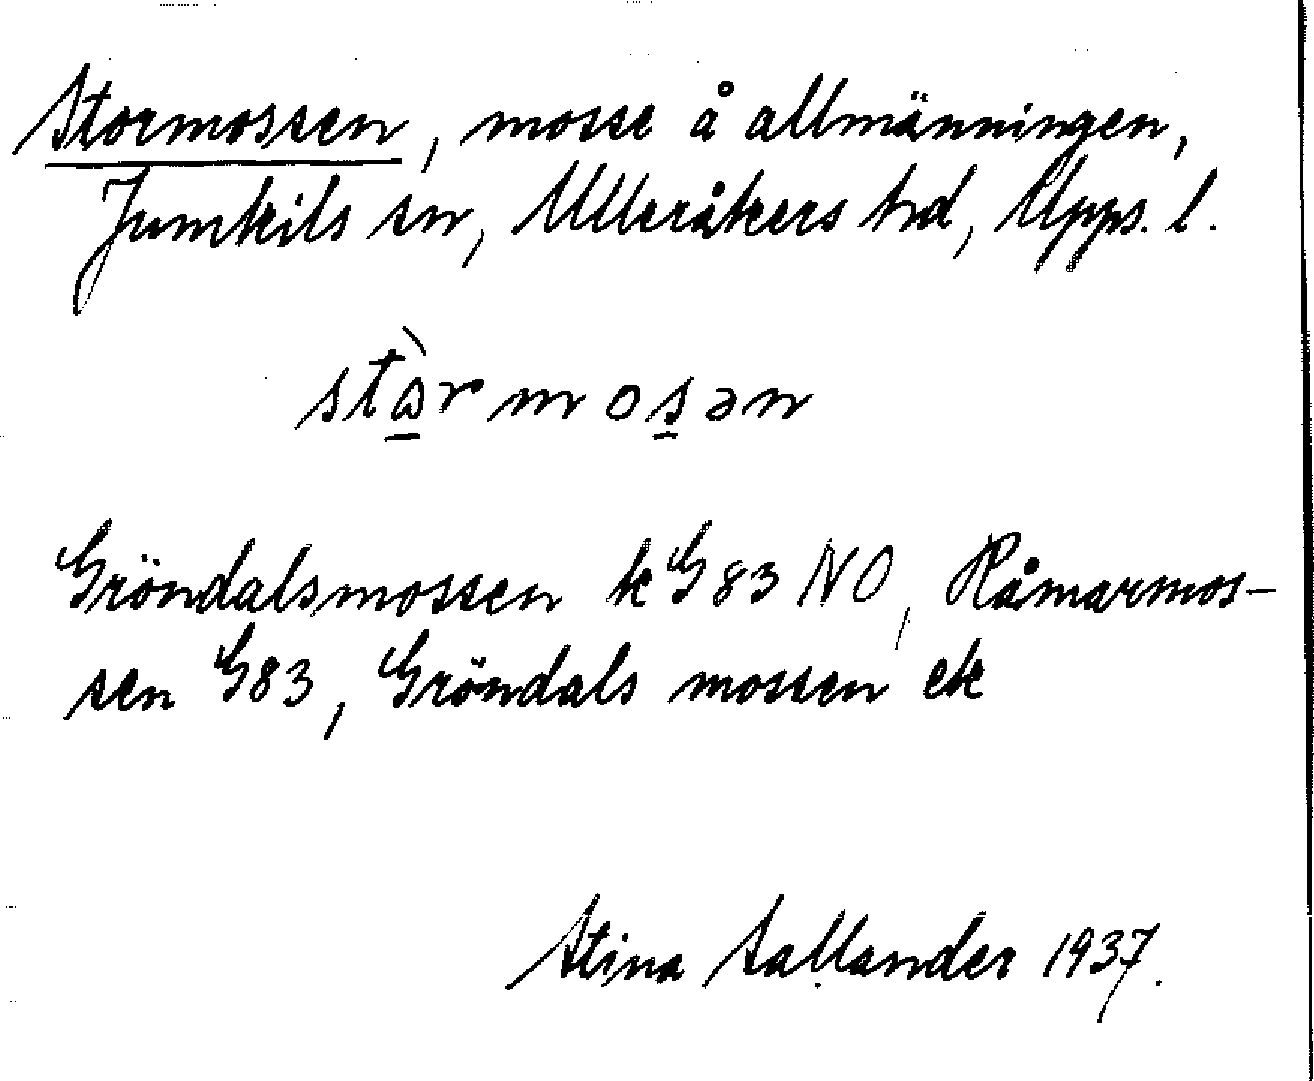 Stormossen, mosse å allmänningen,
Jumkils sn, Ulleråkers hd, Upps. l.
stɷ̀rmosən
Gröndalsmossen k G83 NO, Råmarmos-
sen G83, Gröndals mossen ek
Stina Sallander 1937.